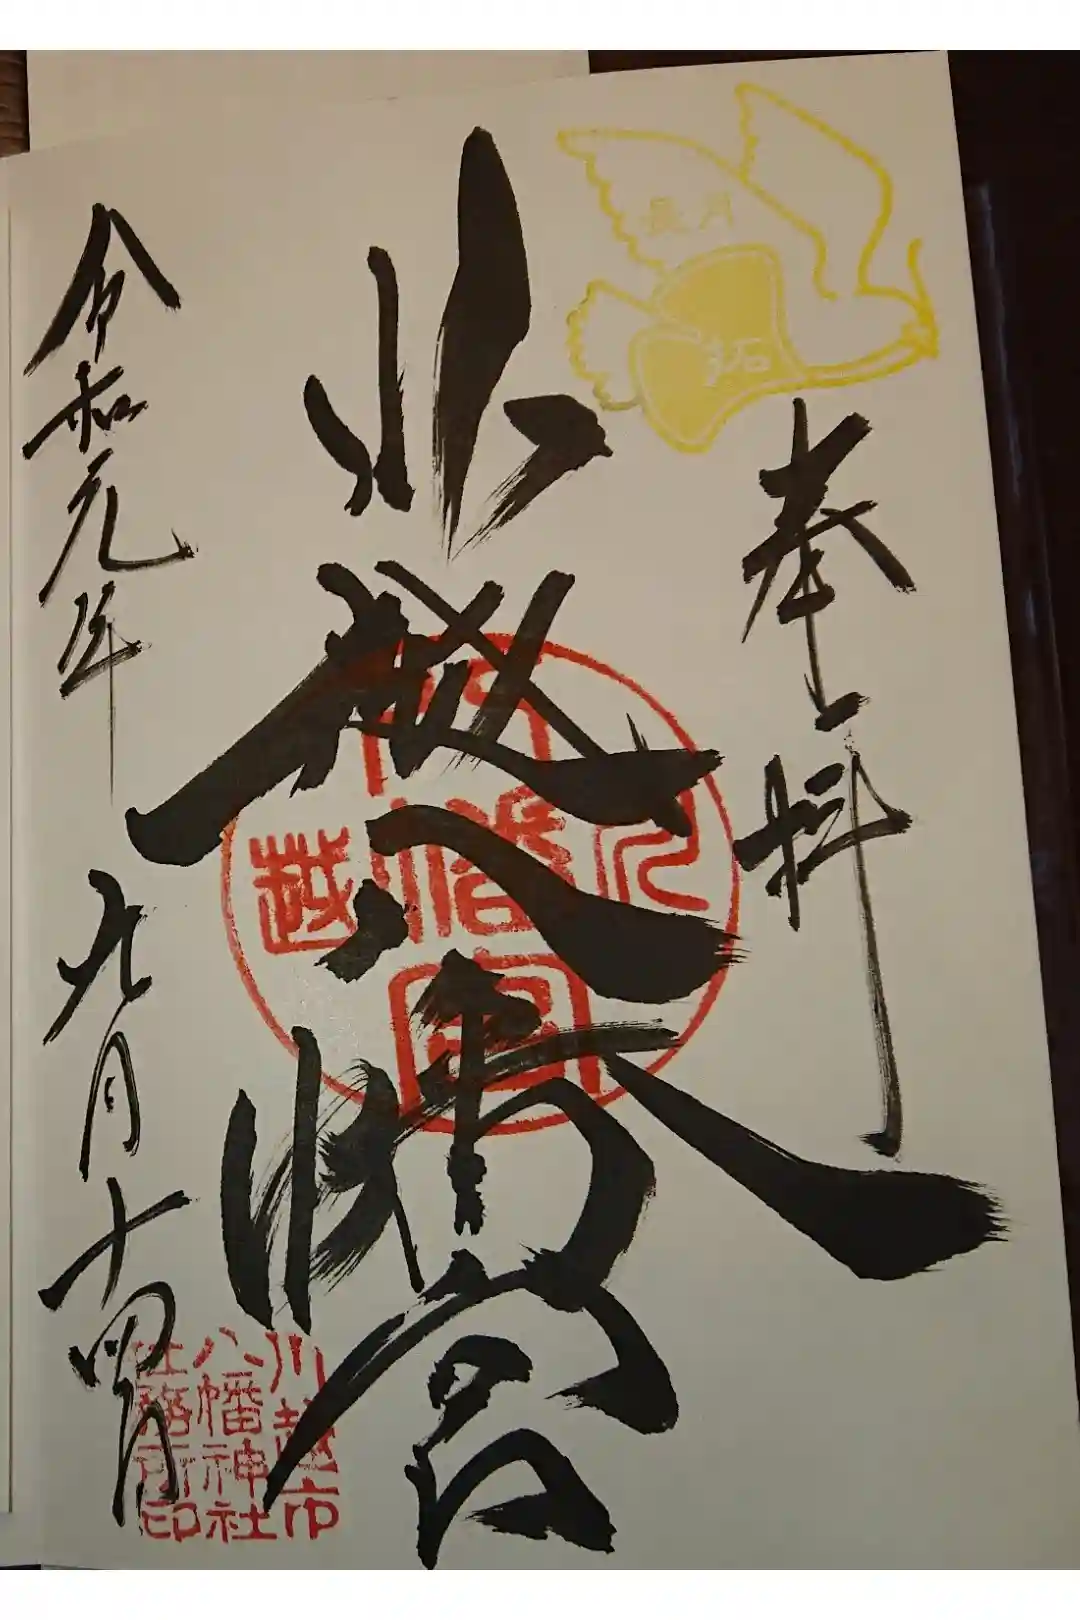 奉拝
長月
拓
川越八幡宮
川越
八幡宮
川越市
八幡神社
社務所印
令和元年
九月十四日